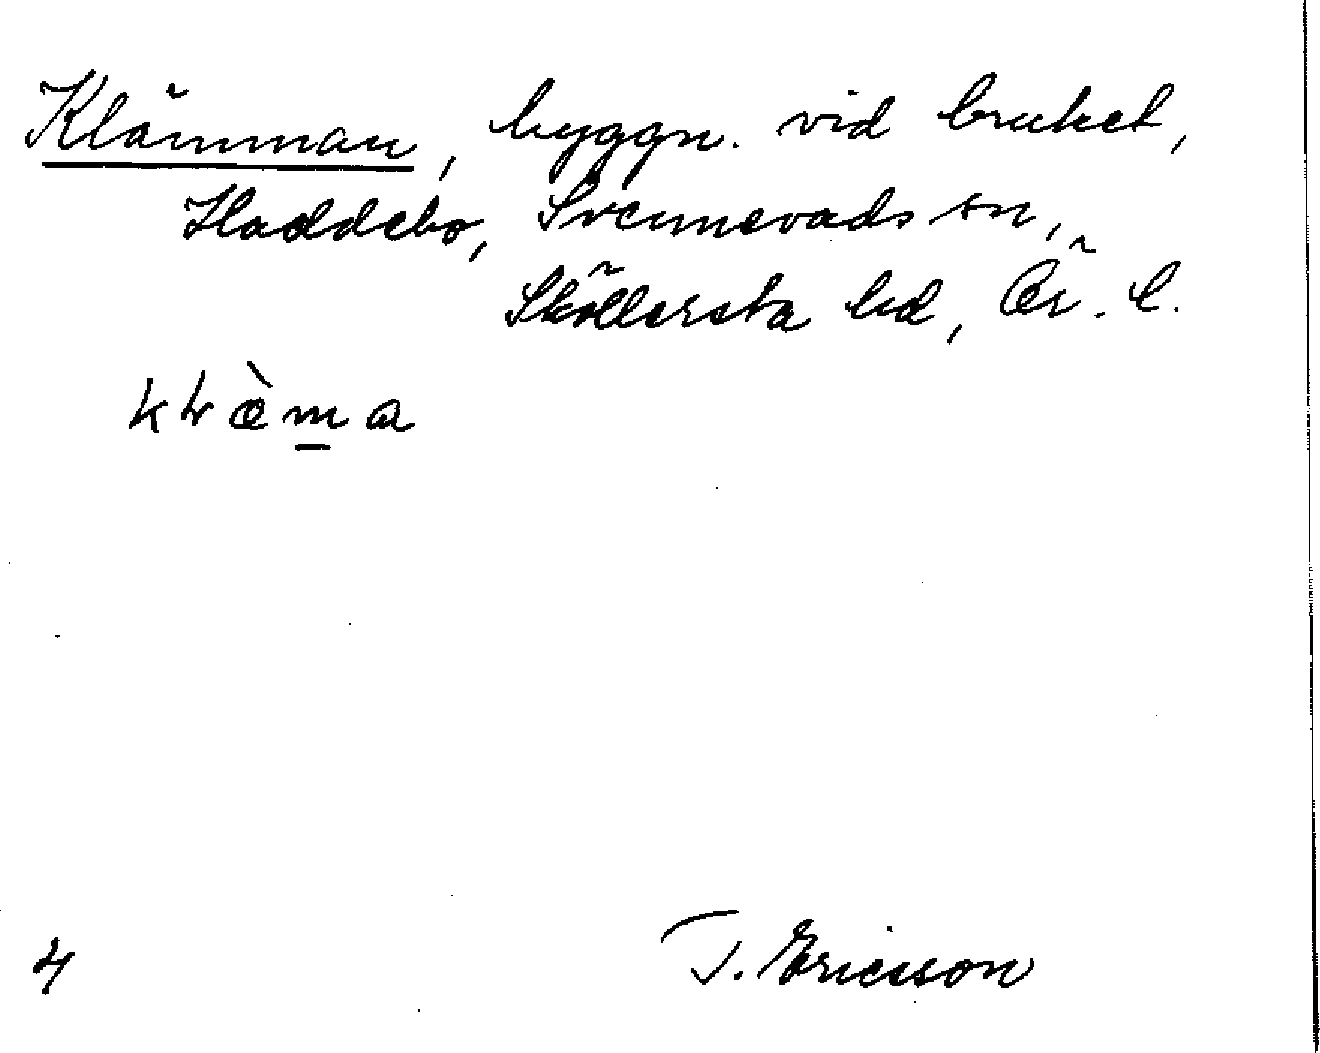 Klämman, byggn. vid bruket,
Haddebo, Svennevads sn,
Sköllersta hd, Ör. l.
T. Ericsson
4